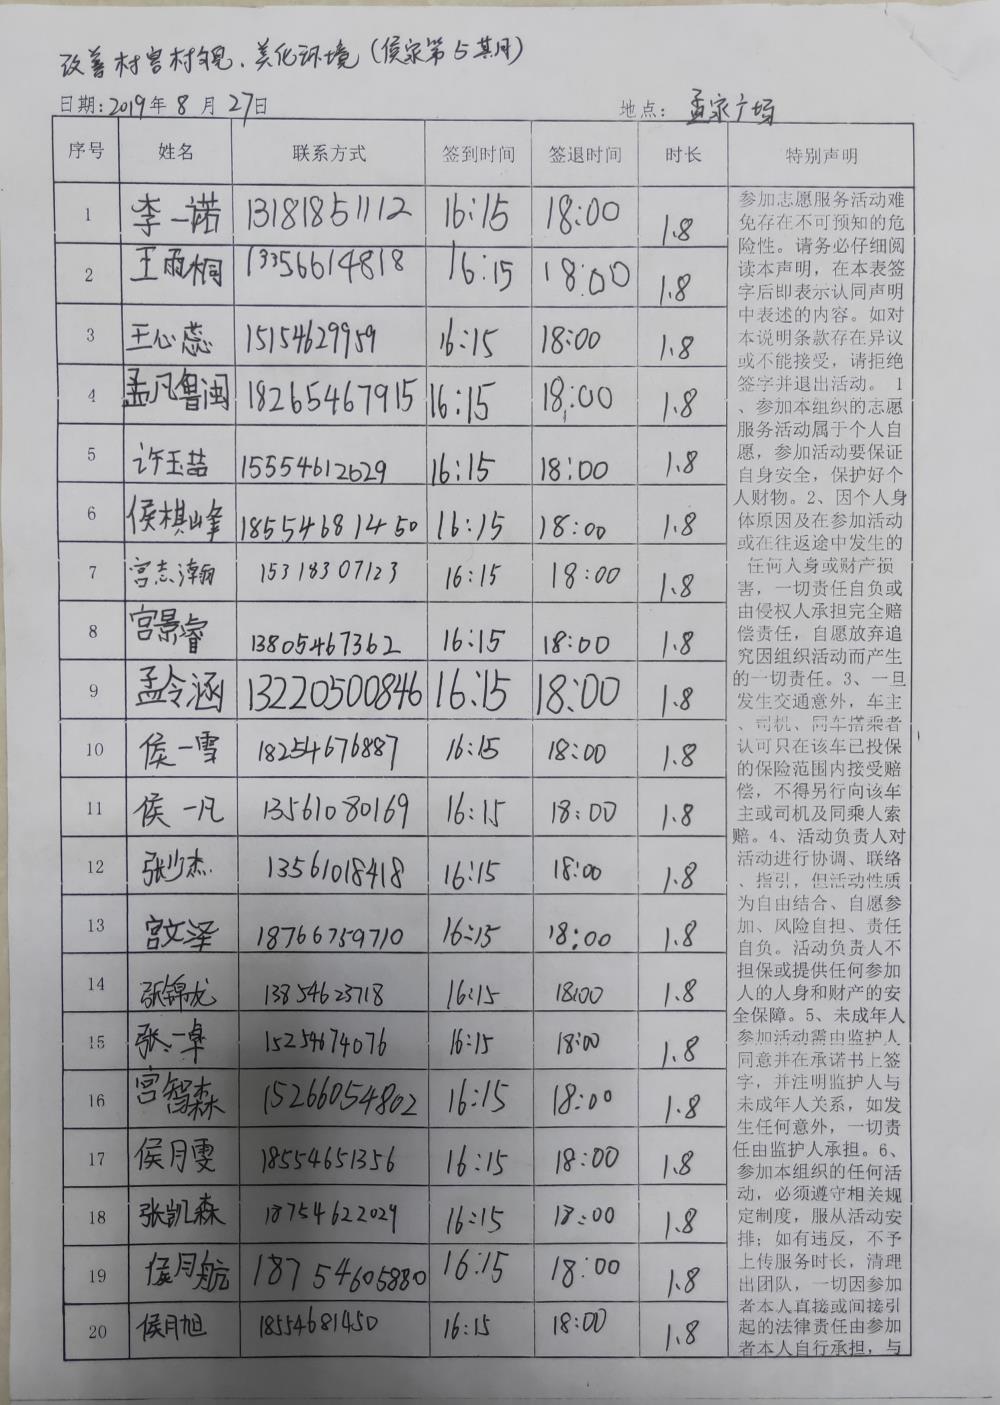 改善村容村貌、美化环境(侯家第5期)
日期:2019年8月27日 地点:孟家广场
序号 姓名 联系方式 签到时间 签退时间 时长 特别声明
1 李一诺 13181851112 16:15 18:00 1.8
2 王雨桐 13356614818 16:15 18:00 1.8
3 王心蕊 15154629959 16:15 18:00 1.8
4 孟凡鲁闽 18265467915 16:15 18:00 1.8
5 许玉喆 15554612629 16:15 18:00 1.8
6 侯棋峰 18554681450 16:15 18:00 1.8
7 宫志瀚 15318307123 16:15 18:00 1.8
8 宫景睿 13805467362 16:15 18:00 1.8
9 孟令涵 13220500846 16:15 18:00 1.8
10 侯一雪 18254676887 16:15 18:00 1.8
11 侯一凡 13561080169 16:15 18:00 1.8
12 张少杰 13561018418 16:15 18:00 1.8
13 宫文泽 18766759710 16:15 18:00 1.8
14 张锦龙 13854623718 16:15 18:00 1.8
15 张一卓 15254674076 16:15 18:00 1.8
16 宫智森 15266054802 16:15 18:00 1.8
17 侯月雯 18554651356 16:15 18:00 1.8
18 张凯森 18754622029 16:15 18:00 1.8
19 侯月航 18754605880 16:15 18:00 1.8
20 侯月旭 18554681450 16:15 18:00 1.8
参加志愿服务活动难
免存在不可预知的危
险性。请务必仔细阅
读本声明，在本表签
字后即表示认同声明
中表述的内容。如对
本说明条款存在异议
或不能接受，请拒绝
签字并退出活动。 1
、参加本组织的志愿
服务活动属于个人自
愿，参加活动要保证
自身安全，保护好个
人财物。2、因个人身
体原因及在参加活动
或在往返途中发生的
任何人身或财产损
害，一切责任自负或
由侵权人承担完全赔
偿责任，自愿放弃追
究因组织活动而产生
的一切责任。3、一旦
发生交通意外，车主
、司机、同车搭乘者
认可只在该车已投保
的保险范围内接受赔
偿，不得另行向该车
主或司机及同乘人索
赔。4、活动负责人对
活动进行协调、联络
、指引，但活动性质
为自由结合、自愿参
加、风险自担、责任
自负。活动负责人不
担保或提供任何参加
人的人身和财产的安
全保障。5、未成年人
参加活动需由监护人
同意并在承诺书上签
字，并注明监护人与
未成年人关系，如发
生任何意外，一切责
任由监护人承担。6、
参加本组织的任何活
动，必须遵守相关规
定制度，服从活动安
排；如有违反，不予
上传服务时长，清理
出团队，一切因参加
者本人直接或间接引
起的法律责任由参加
者本人自行承担，与